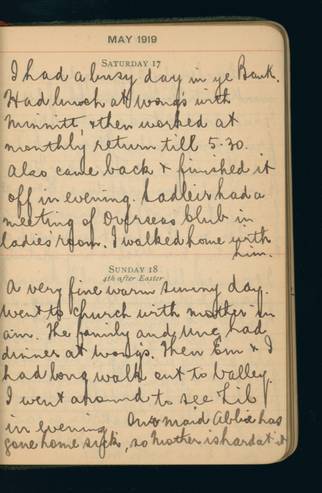 MAY 1919
SATURDAY 17
I had a busy day in ye Bank.
Had lunch at Wong's with
Minnitt, & then worked at
monthly return till 5.30.
Also came back & finished it
off in evening. Sadleir had a
meeting of Overseas Club in
ladies' room. I walked home with
him.
SUNDAY 18
4th after Easter
A very fine warm sunny day.
Went to church with mother in
a.m. The family and Unc had
dinner at Wong's. Then Em & I
had long walk out to valley.
I went around to see Lil
in evening. Our maid Abbie has
gone home sick, so Mother is hard at it